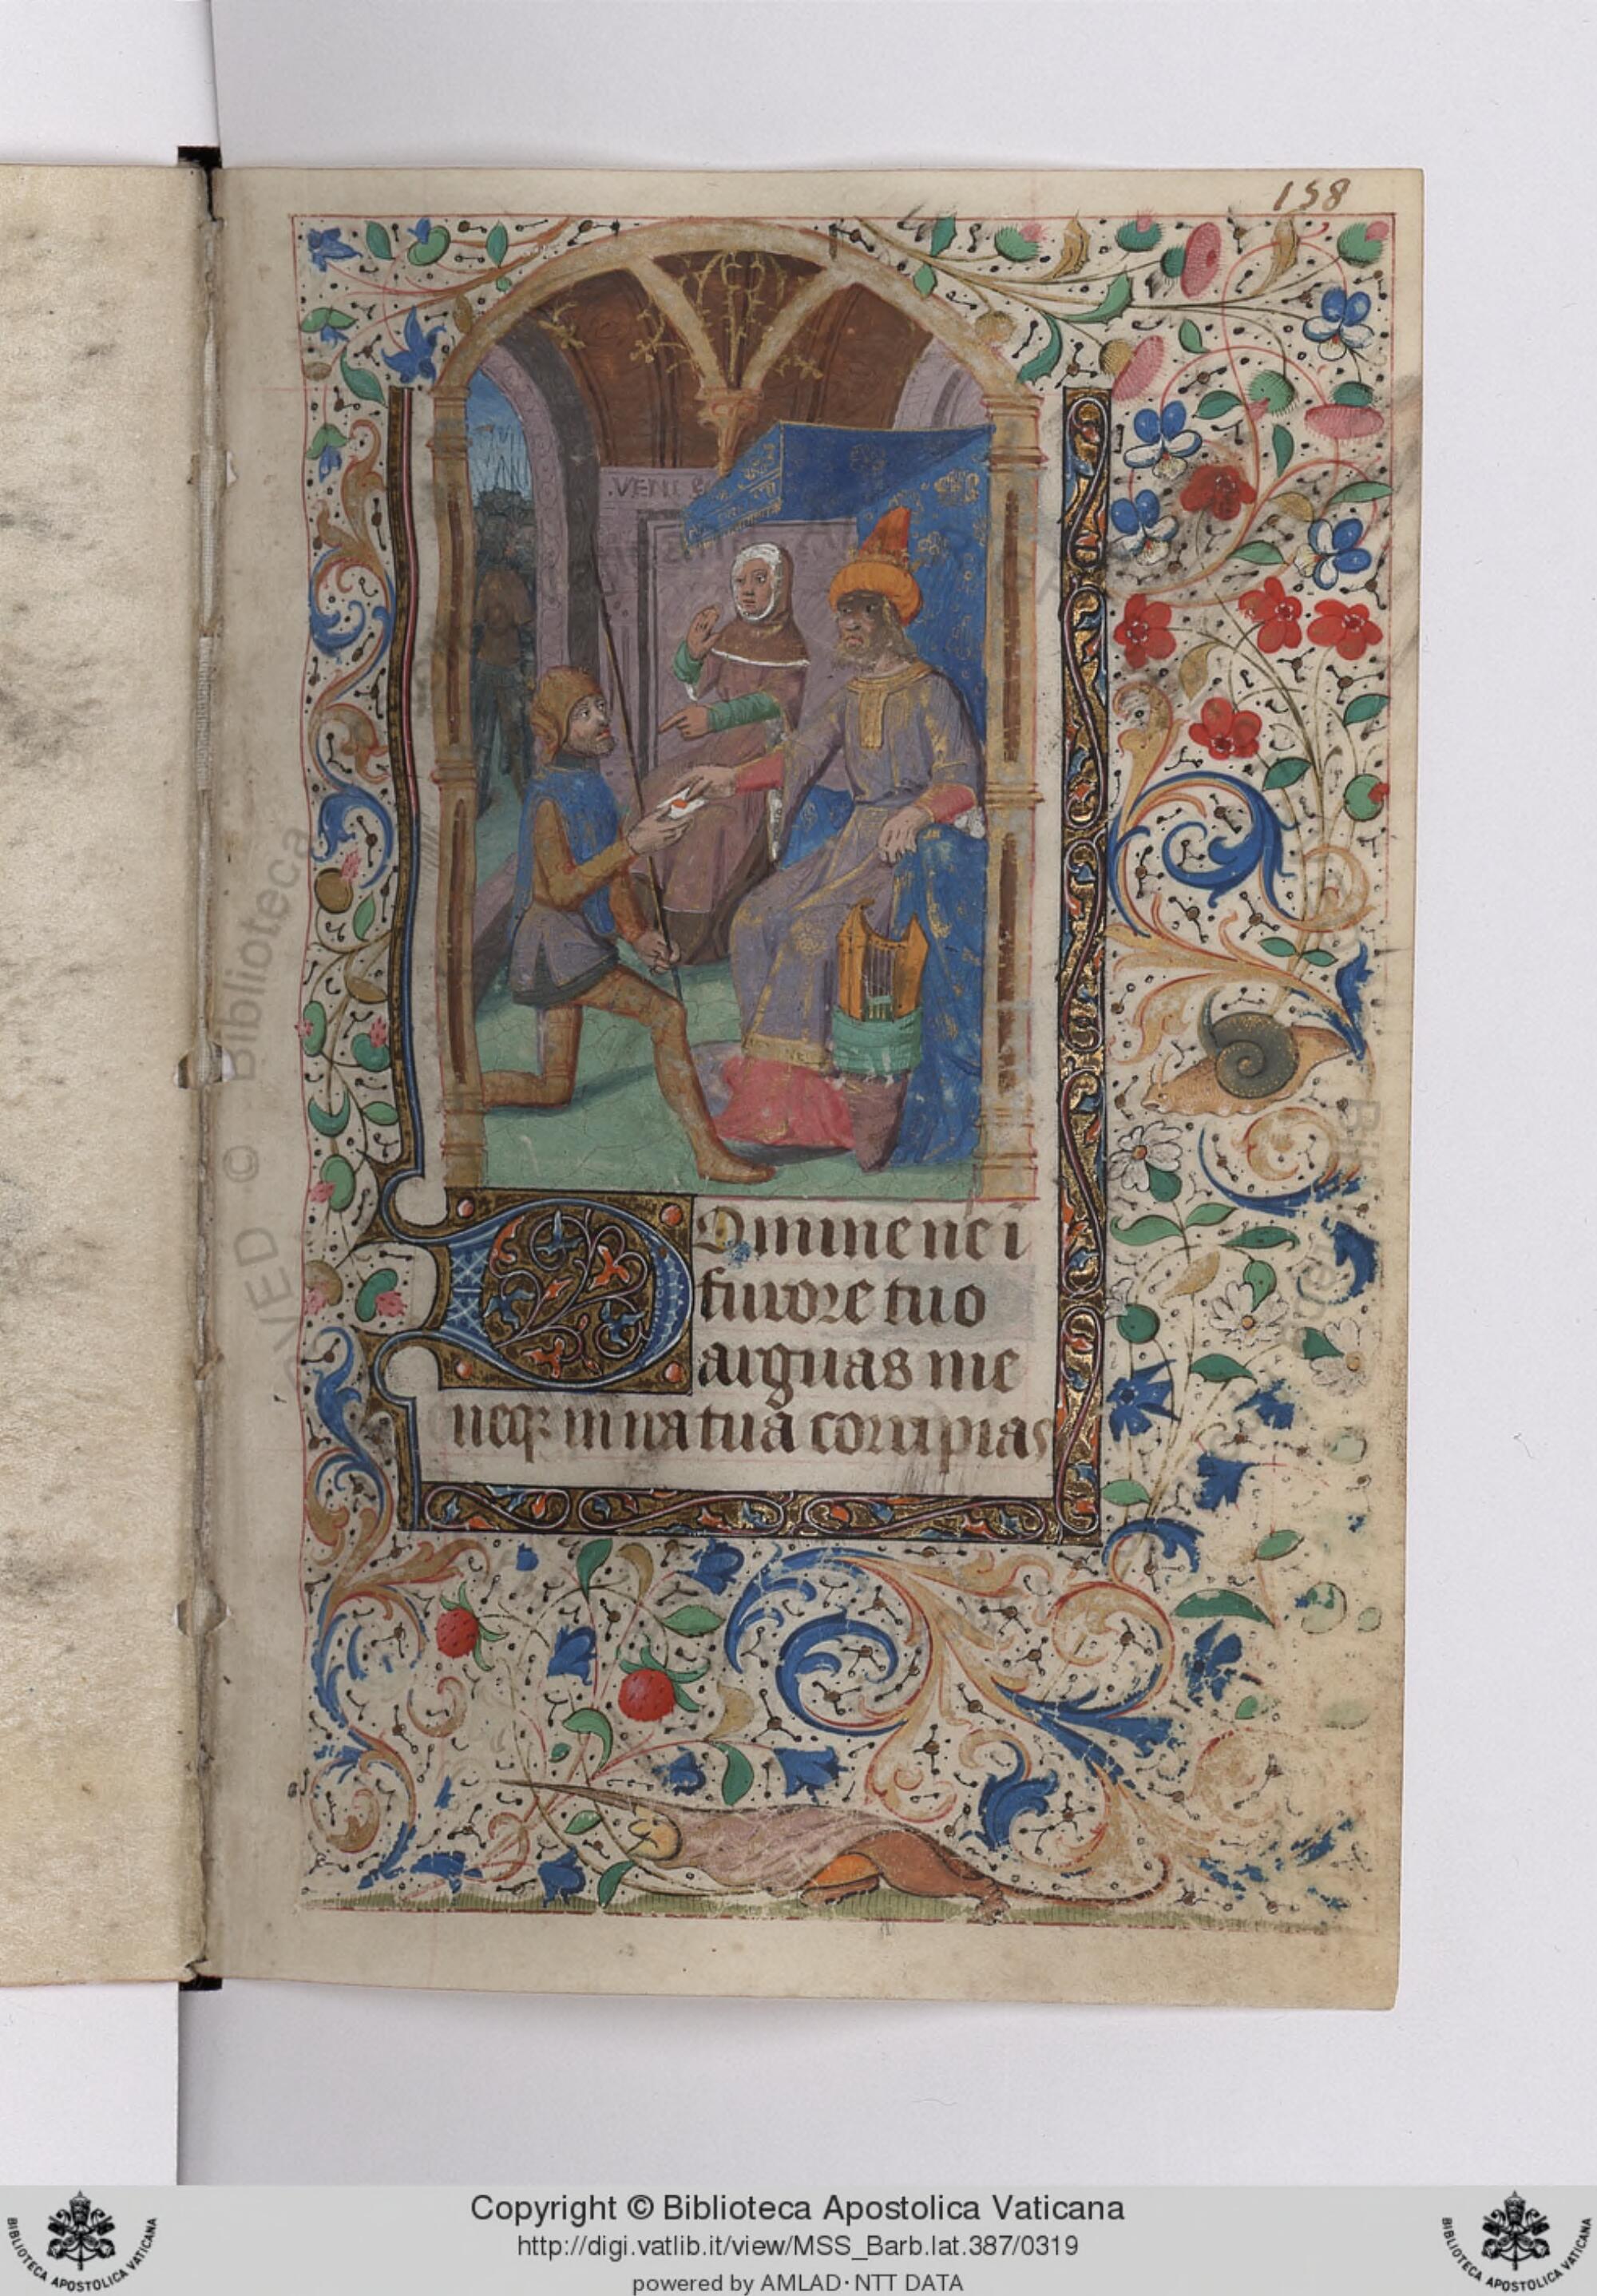 158
.VENI
Domine ne i
furore tuo
arguas me
neqꝫ in ira tuā corripias
Copyright © Biblioteca Apostolica Vaticana
http://digi.vatlib.it/view/MSS_Barb.lat.387/0319
powered by AMLAD·NTT DATA
BIBLIOTECA APOSTOLICA VATICANA
BIBLIOTECA APOSTOLICA VATICANA
© Biblioteca